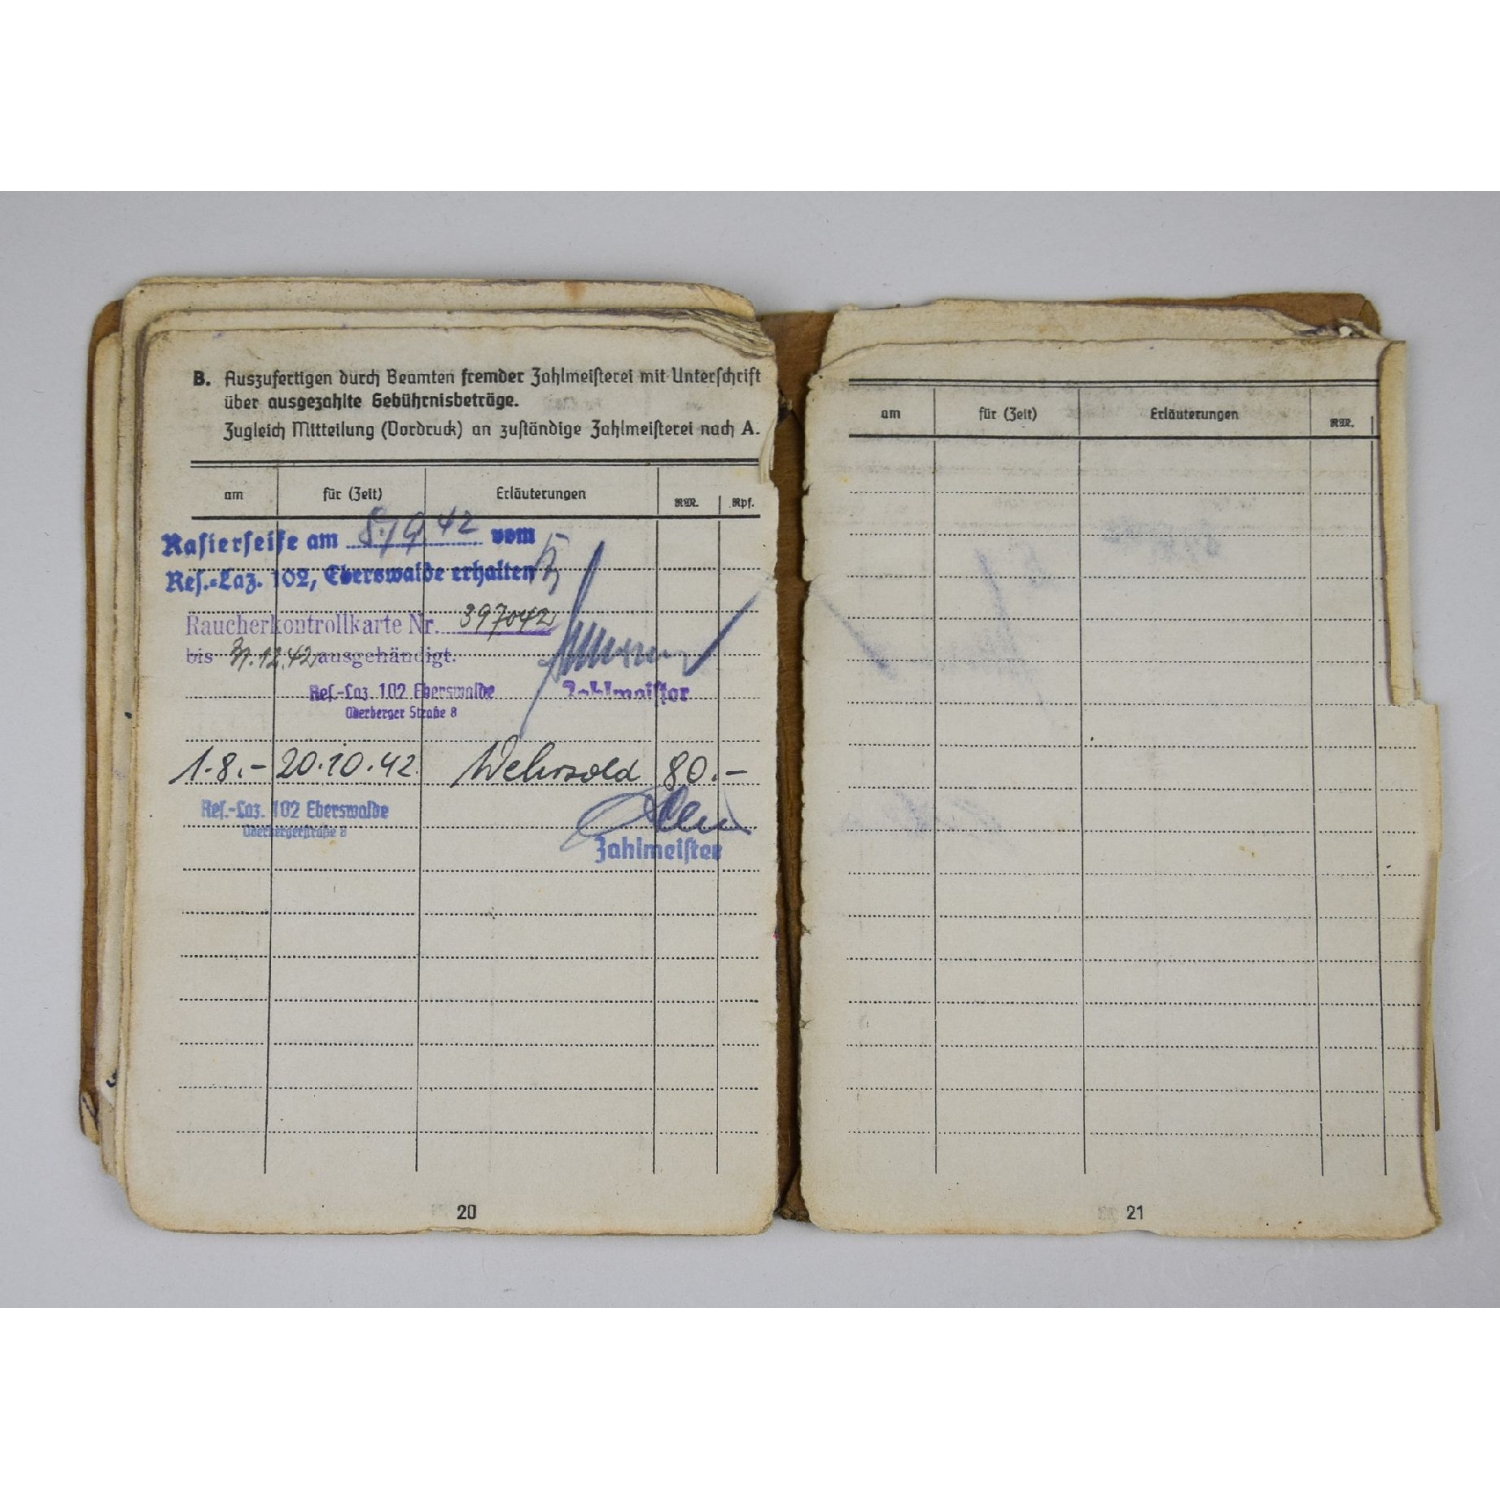 B. Auszufertigen durch Beamten fremder Zahlmeisterei mit Unterschrift
über ausgezahlte Gebührnisbeträge.
Zugleich Mitteilung (Vordruck) an zuständige Zahlmeisterei nach A.
am für (Zeit) Erläuterungen RM. Rpf.
Rasierseife am 8/9 42 vom
Res.-Laz. 102, Eberswalde erhalten
Raucherkontrollkarte Nr. 397042
bis 31.12.42 ausgehändigt.
Res.-Laz. 102 Eberswalde
Oderberger Straße 8
Zahlmeister
1.8.- 20.10.42. Wehrsold 80.-
Res.-Laz. 102 Eberswalde
Oderbergerstraße 8
Zahlmeister
20
am für (Zeit) Erläuterungen RM.
21